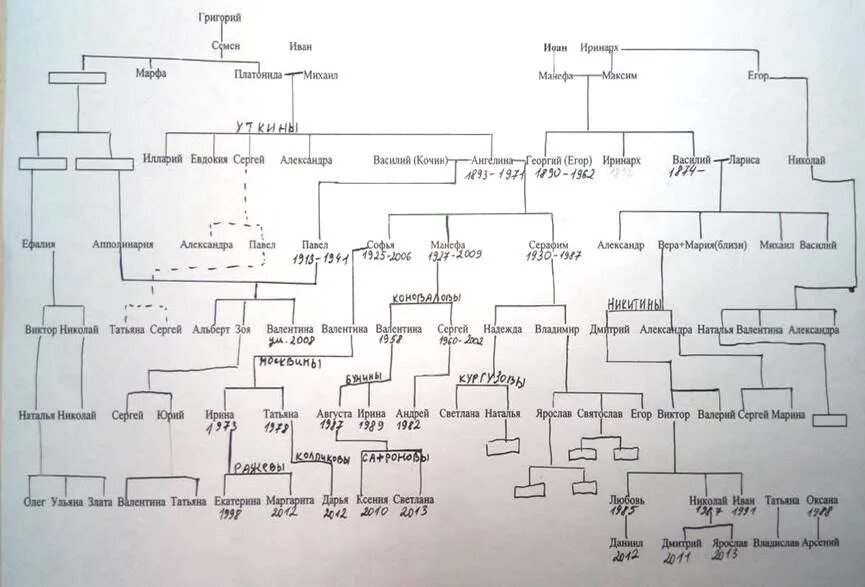 Григорий
Семен Иван Иоан Иринарх
Марфа Платонида Михаил Манефа Максим Егор
УТКИНЫ
Илларий Евдокия Сергей Александра Василий (Кочин) Ангелина Георгий (Егор) Иринарх Василий Лариса Николай
1893-1971 1890-1962 1874-
Ефалия Апполинария Александра Павел Павел Софья Манефа Серафим Александр Вера+Мария(близн) Михаил Василий
1913-1941 1925-2006 1927-2009 1930-1987
КОНОВАЛОВЫ НИКИТИНЫ
Виктор Николай Татьяна Сергей Альберт Зоя Валентина Валентина Валентина Сергей Надежда Владимир Дмитрий Александра Наталья Валентина Александра
ум. 2008 1958 1960-2002
МОСКВИНЫ БУНИНЫ КУРГУЗОВЫ
Наталья Николай Сергей Юрий Ирина Татьяна Августа Ирина Андрей Светлана Наталья Ярослав Святослав Егор Виктор Валерий Сергей Марина
1973 1978 1987 1989 1982
РАЖЕВЫ КОЛПИКОВЫ САФРОНОВЫ
Олег Ульяна Злата Валентина Татьяна Екатерина Маргарита Дарья Ксения Светлана Любовь Николай Иван Татьяна Оксана
1998 2012 2012 2010 2013 1985 1987 1991 1988
Даниил Дмитрий Ярослав Владислав Арсений
2012 2011 2013